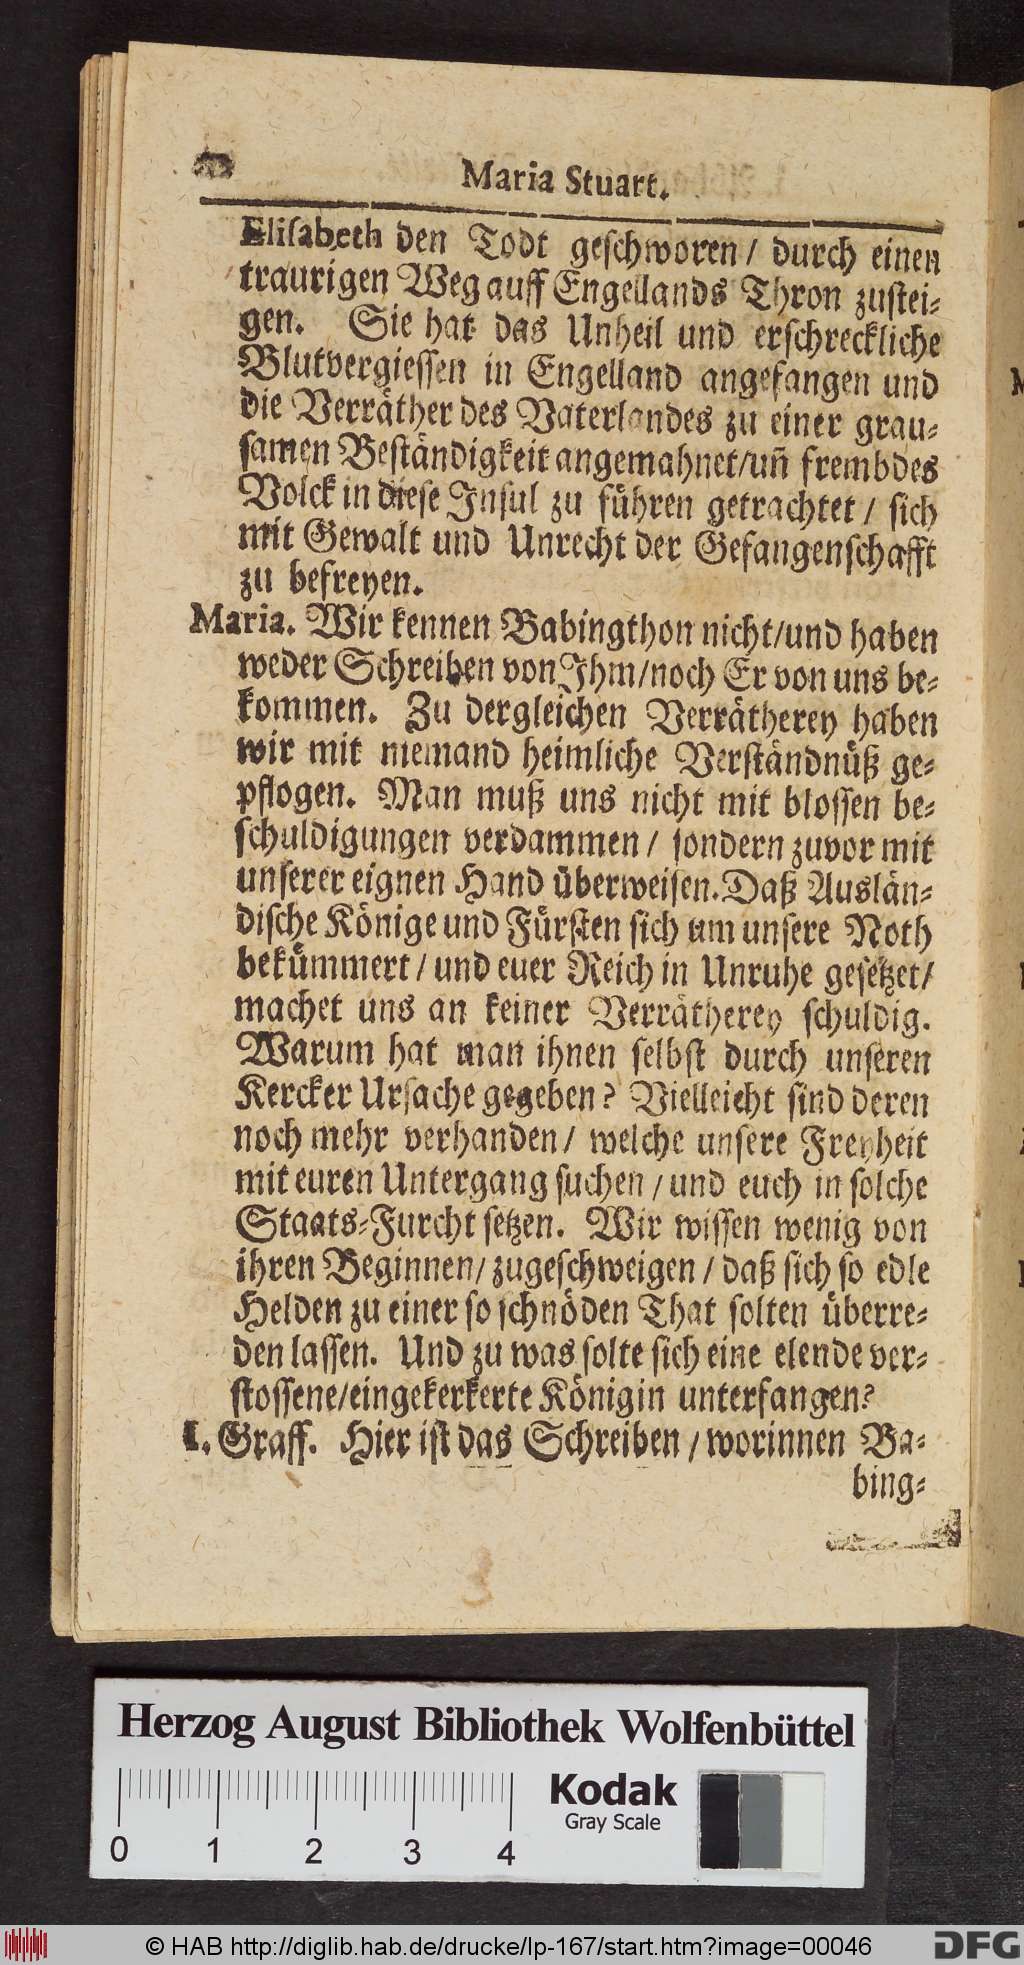 Maria Stuart.
Elisabeth den Todt geschworen / durch einen
traurigen Weg auff Engellands Thron zustei-
gen. Sie hat das Unheil und erschreckliche
Blutvergiessen in Engelland angefangen und
die Verräther des Vaterlandes zu einer grau-
samen Beständigkeit angemahnet/uñ frembdes
Volck in diese Insul zu führen getrachtet / sich
mit Gewalt und Unrecht der Gefangenschafft
zu befreyen.
Maria. Wir kennen Babingthon nicht/und haben
weder Schreiben von Ihm/noch Er von uns be-
kommen. Zu dergleichen Verrätherey haben
wir mit niemand heimliche Verständnüß ge-
pflogen. Man muß uns nicht mit blossen be-
schuldigungen verdammen / sondern zuvor mit
unserer eignen Hand überweisen. Daß Auslän-
dische Könige und Fürsten sich um unsere Noth
bekümmert / und euer Reich in Unruhe gesetzet/
machet uns an keiner Verrätherey schuldig.
Warum hat man ihnen selbst durch unseren
Kercker Ursache gegeben? Vielleicht sind deren
noch mehr verhanden / welche unsere Freyheit
mit euren Untergang suchen / und euch in solche
Staats-Furcht setzen. Wir wissen wenig von
ihren Beginnen/ zugeschweigen / daß sich so edle
Helden zu einer so schnöden That solten überre-
den lassen. Und zu was solte sich eine elende ver-
stossene/eingekerkerte Königin unterfangen?
I. Graff. Hier ist das Schreiben / worinnen Ba-
bing-
Herzog August Bibliothek Wolfenbüttel
Kodak
Gray Scale
0 1 2 3 4
© HAB http://diglib.hab.de/drucke/lp-167/start.htm?image=00046
DFG